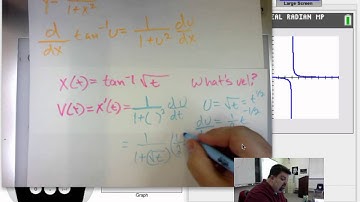 y = 1/(1+x²)
d/dx tan⁻¹ u = 1/(1+u²) du/dx
x(t) = tan⁻¹ √t What's vel?
V(t) = x'(t) = 1/(1+( )²) du/dt u = √t = t^(1/2)
du/ = 1/2 t^(-1/2)
= 1/(1+(√t)
Large Screen
RADIAN MP
Graph